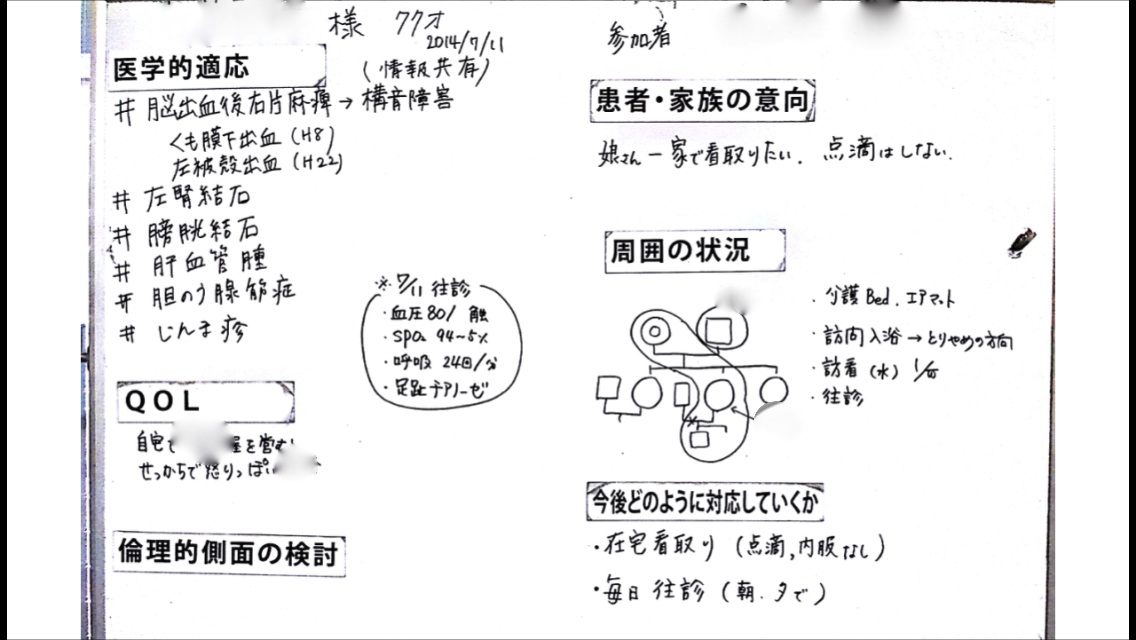 様 ククオ
2014/7/11
(情報共有)
医学的適応
# 脳出血後右片麻痺→構音障害
くも膜下出血(H8)
左被殻出血(H22)
# 左腎結石
# 膀胱結石
# 肝血管腫
# 胆のう腺筋症
# じんま疹
※7/11 往診
・血圧80/触
・SpO₂ 94~5%
・呼吸 24回/分
・足趾チアノーゼ
QOL
自宅で 屋を営む
せっかちで怒りっぽい
倫理的側面の検討
参加者
患者・家族の意向
娘さん一家で看取りたい. 点滴はしない.
周囲の状況
・介護Bed. エアマット
・訪問入浴→とりやめの方向
・訪看(水) 1/w
・往診
今後どのように対応していくか
・在宅看取り(点滴,内服なし)
・毎日往診(朝.夕で)